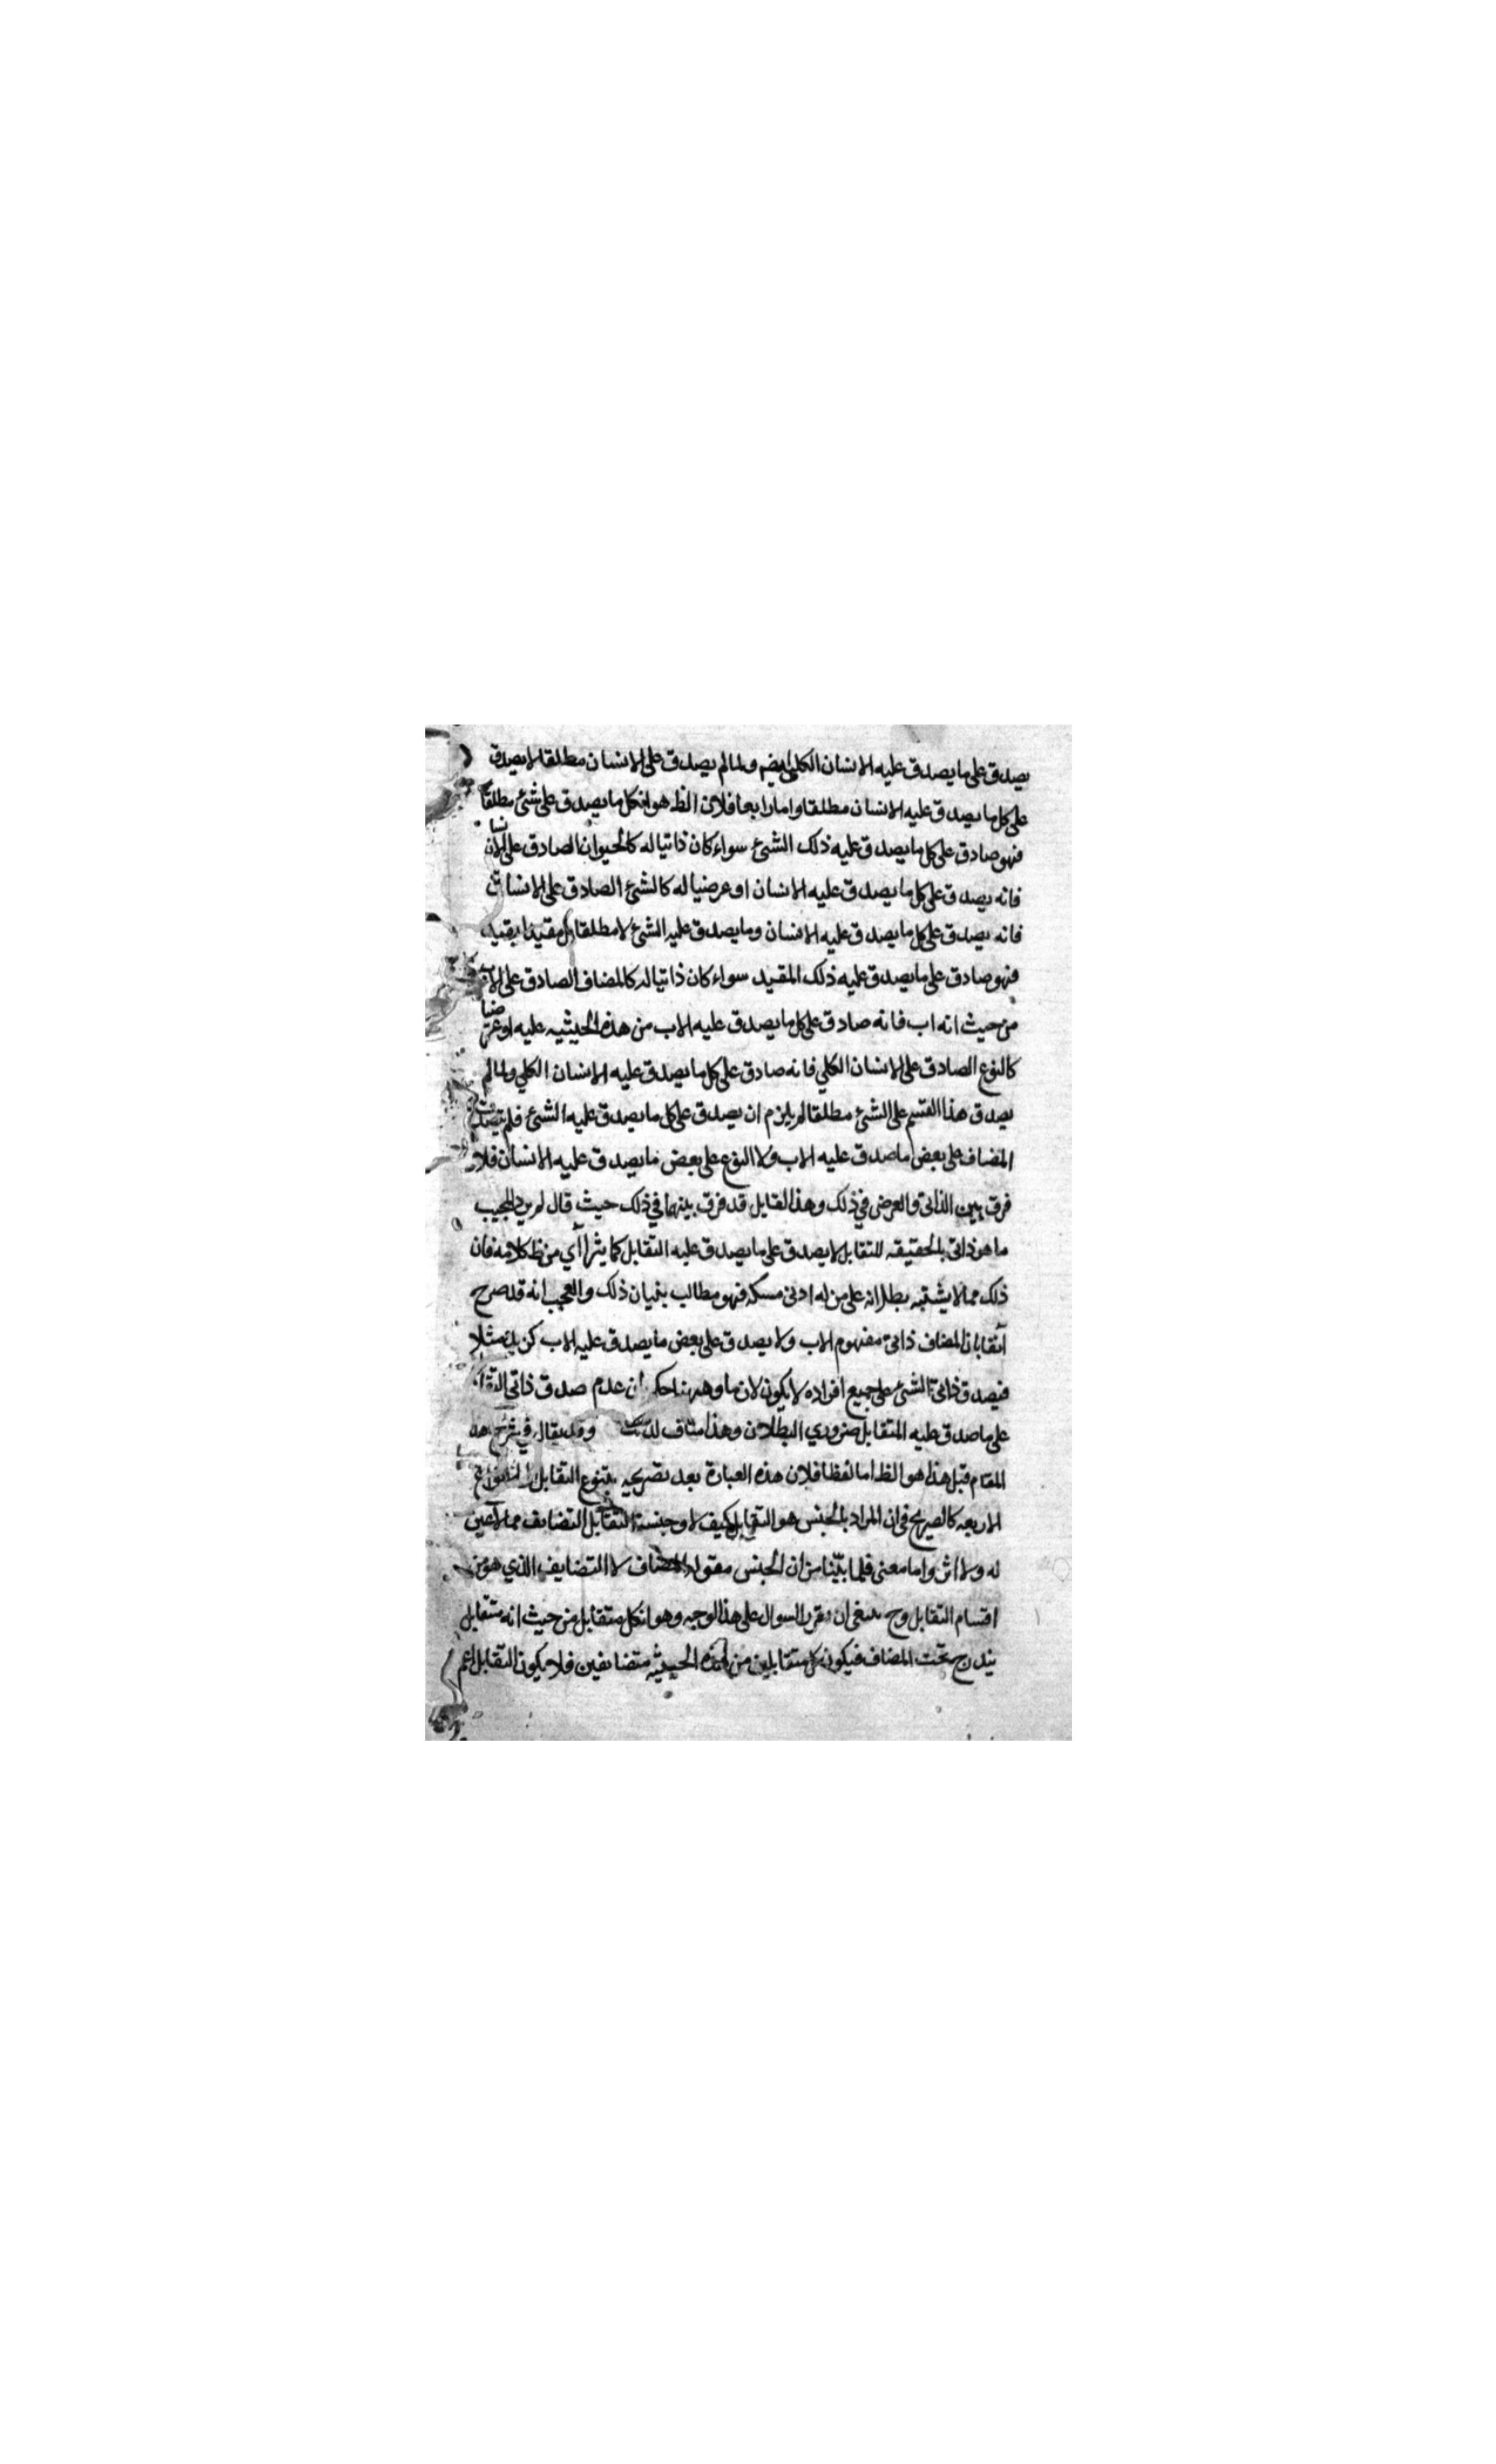 يصدق على ما يصدق عليه الانسان الكلي ايضم ولما لم يصدق على الانسان مطلقا لا يصدق
على كل ما يصدق عليه الانسان مطلقا واما رابعا فلان الظ هو انكل ما يصدق على شئ مطلقا
فهو صادق على كل ما يصدق عليه ذلك الشئ سواء كان ذاتيا له كالحيوان الصادق على الانسان
فانه يصدق على كل ما يصدق عليه الانسان او عرضيا له كالشئ الصادق على الانسان
فانه يصدق على كل ما يصدق عليه الانسان وما يصدق عليه الشئ لا مطلقا بل مقيدا بقيد
فهو صادق على ما يصدق عليه ذلك المقيد سواء كان ذاتيا له كالمضاف الصادق على الاب
من حيث انه اب فانه صادق على كل ما يصدق عليه الاب من هذه الحيثيه عليه او عرضيا
كالنوع الصادق على الانسان الكلي فانه صادق على كل ما يصدق عليه الانسان الكلي ولما لم
يصدق هذا القسم على الشئ مطلقا لم يلزم ان يصدق على كل ما يصدق عليه الشئ فلم يصدق
المضاف على بعض ما صدق عليه الاب ولا النوع على بعض ما يصدق عليه الانسان فلا
فرق بين الذاتي والعرضي في ذلك وهذا القايل قد فرق بينهما في ذلك حيث قال لم يرد المجيب
ما هو ذاتي بالحقيقه للتقابل لا يصدق على ما يصدق عليه التقابل كما يتراآي من ظ كلامه فان
ذلك مما لا يشتبه بطلانه على من له ادنى مسكه فهو مطالب ببيان ذلك والعجب انه قد صرح
آنفا بان المضاف ذاتي مفهوم الاب ولا يصدق على بعض ما يصدق عليه الاب كزيد مثلا
فيصدق ذاتي الشئ على جميع افراده لا يكون لازما وههنا حكم ان عدم صدق ذاتي التقابل
على ما صدق عليه المتقابل ضروري البطلان وهذا مناف لذلك وقد يقال في شرح هذا
المقام قبل هذا هو الظ اما لفظا فلان هذه العبارة بعد تصريحه بتنوع التقابل الى انواع
الاربعه كالصريح في ان المراد بالجنس هو التقابل كيف لا وجنسية التقابل التضايف مما لا عين
له ولا اثر واما معنى فلما بيّنا من ان الجنس مقوله المضاف لا التضايف الذي هو من
اقسام التقابل وح ينبغي ان يقرر السوال على هذا الوجه وهو انكل متقابل من حيث انه متقابل
يندرج تحت المضاف فيكون كل متقابلين من هذه الحيثيه متضايفين فلا يكون التقابل اعم